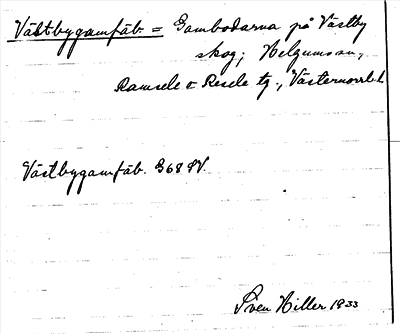 Västbygamfäb. = Gambodarna på Västby
skog; Helgums sn,
Ramsele o Resele tg., Västernorrl. l.
Västbygamfäb. 368 SV.
Sven Hiller 1933